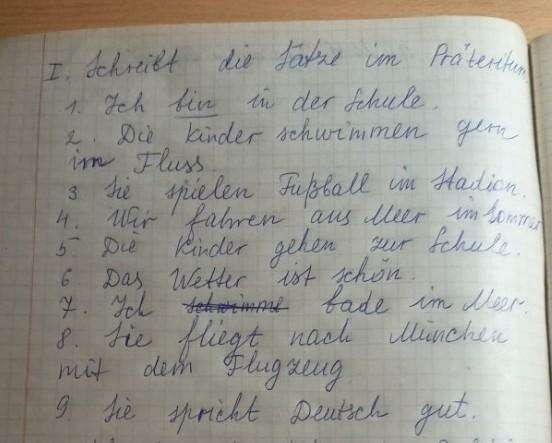 I. Schreibt die Sätze im Präteritum
1. Ich bin in der Schule.
2. Die Kinder schwimmen gern
im Fluss
3. Sie spielen Fußball im Stadion.
4. Wir fahren ans Meer im Sommer
5. Die Kinder gehen zur Schule.
6 Das Wetter ist schön.
7. Ich schwimme bade im Meer.
8. Sie fliegt nach München
mit dem Flugzeug
9. Sie spricht Deutsch gut.